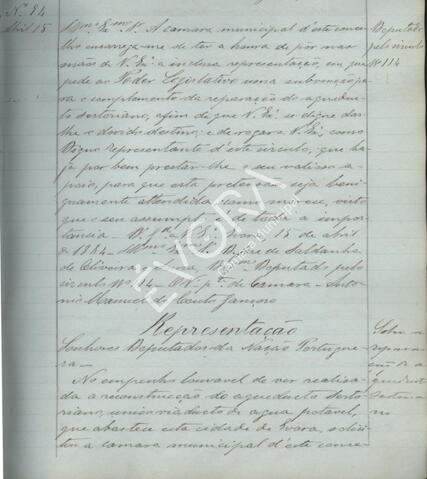 Nº 84
Abril 15
Illmo Exmo Sr. A camara municipal d'este conce-
lho encarrega-me de ter a honra de pôr nas
mãos de V. Exª a inclusa representação, em que
pede ao Poder Legislativo uma subvenção pa-
ra o complemento da reparação do aqueduto
sertoriano, afim de que V. Exª se digne dar-
lhe o devido destino; e de rogar a V. Exª, como
Digno representante d'este circulo, que ha-
ja por bem prestar-lhe o seu valioso a-
poio, para que esta pretensão seja beni-
gnamente attendida, como merece, visto
que o seu assumpto é de toda a impor-
tancia. Evora, 15 de abril
de 1884
de Saldanha
de Oliveira Deputado pelo
circulo Nº 114. O V. p.te da Camara - Anto-
nio Manuel do Couto
Deputado
pelo circulo
Nº 114
Representação
Senhores Deputados da Nação Portugue-
za
No empenho louvavel de ver realisa-
da a reconstrucção do aqueducto serto-
riano, unico viaducto de agua potavel,
que abastece esta cidade de Evora, solici-
tou a camara municipal d'este conce-
Sobre a
repara-
ção do a
queducto
Sertoria
no
EVORA
Câmara Municipal